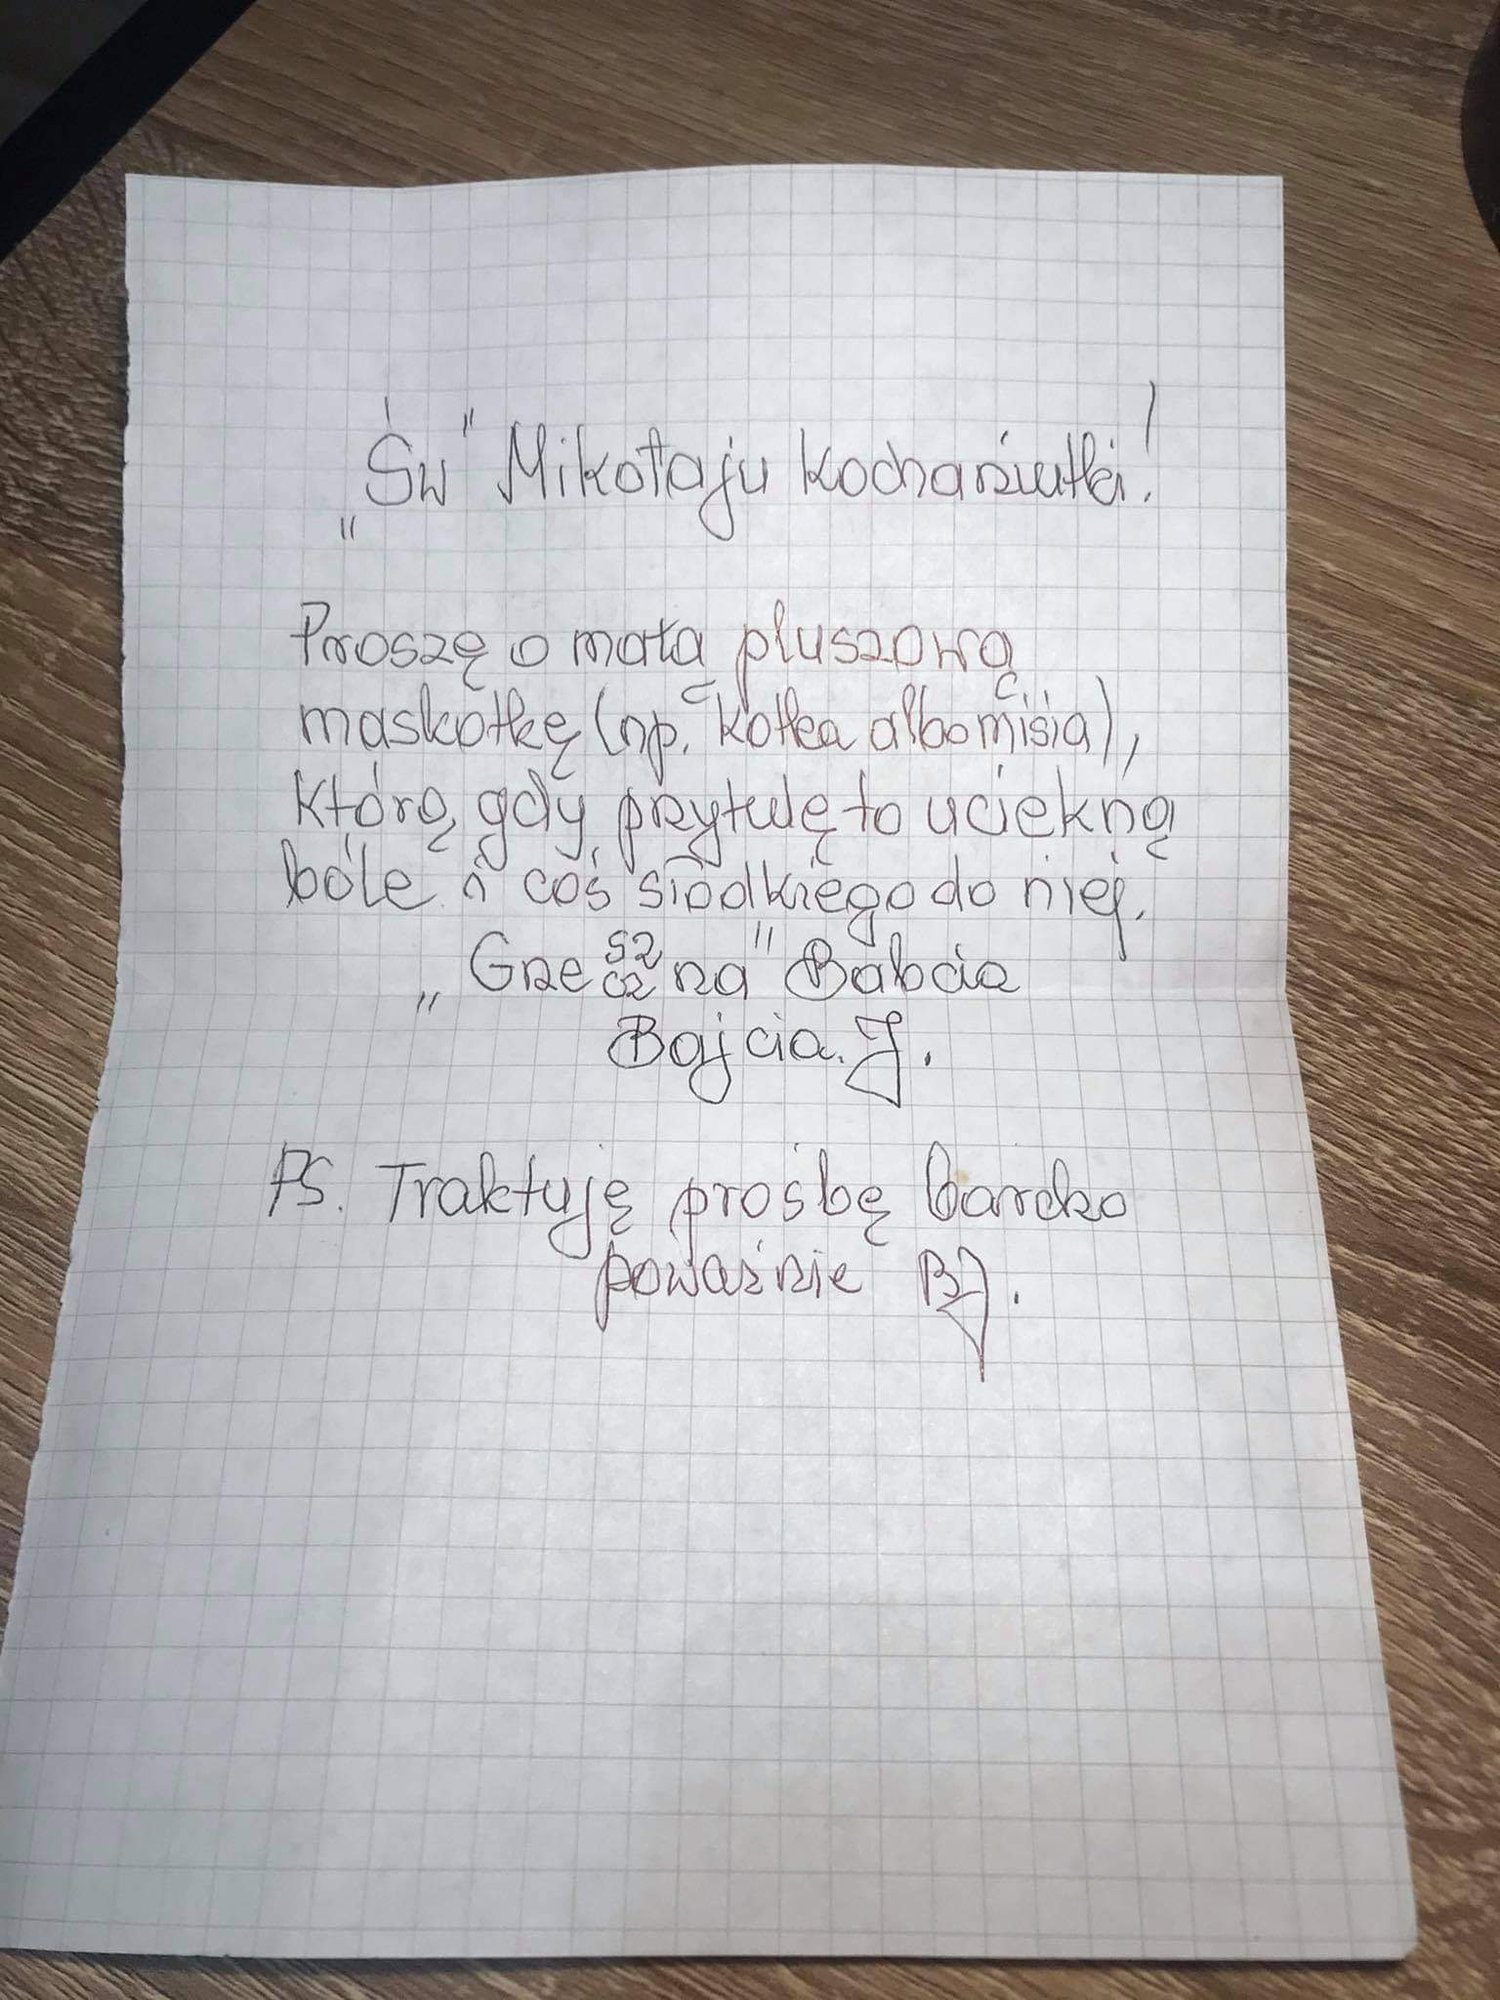 „Św" Mikołaju kochaniutki!
Proszę o małą pluszową
maskotkę (np. kotka albo misia),
którą, gdy przytulę to uciekną
bóle i coś słodkiego do niej.
„Grzeszczna" Babcia
Bajcia. J.
PS. Traktuję prośbę bardzo
poważnie BJ.